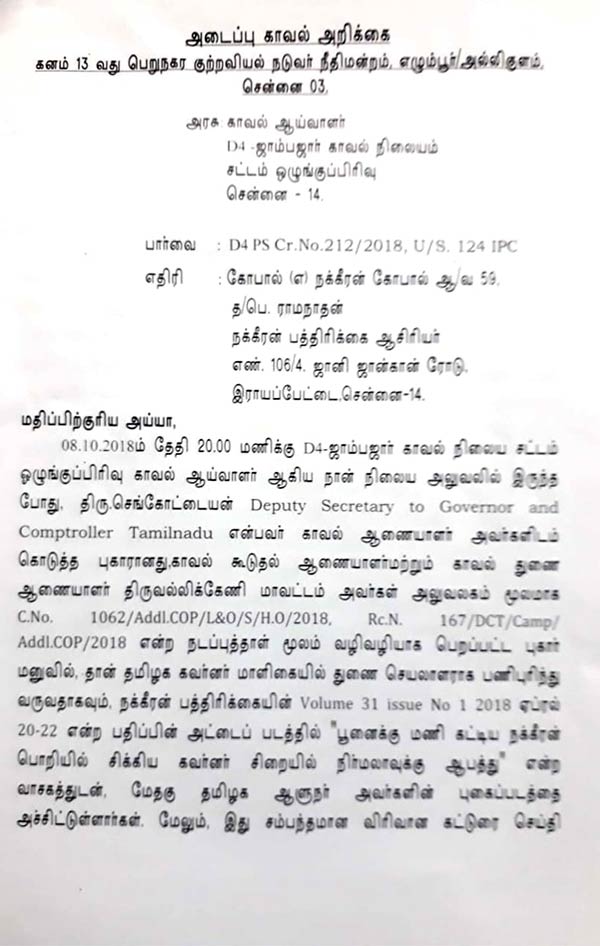 அடைப்பு காவல் அறிக்கை
கனம் 13 வது பெறுநகர குற்றவியல் நடுவர் நீதிமன்றம், எழும்பூர்/அல்லிகுளம்,
சென்னை 03.
அரசு காவல் ஆய்வாளர்
D4 -ஜாம்பஜார் காவல் நிலையம்
சட்டம் ஒழுங்குப்பிரிவு
சென்னை - 14.
பார்வை : D4 PS Cr.No.212/2018, U/S. 124 IPC
எதிரி : கோபால் (எ) நக்கீரன் கோபால் ஆ/வ 59,
த/பெ. ராமநாதன்
நக்கீரன் பத்திரிக்கை ஆசிரியர்
எண். 106/4. ஜானி ஜான்கான் ரோடு,
இராயப்பேட்டை,சென்னை-14.
மதிப்பிற்குரிய அய்யா,
08.10.2018ம் தேதி 20.00 மணிக்கு D4-ஜாம்பஜார் காவல் நிலைய சட்டம்
ஒழுங்குப்பிரிவு காவல் ஆய்வாளர் ஆகிய நான் நிலைய அலுவலில் இருந்த
போது, திரு.செங்கோட்டையன் Deputy Secretary to Governor and
Comptroller Tamilnadu என்பவர் காவல் ஆணையாளர் அவர்களிடம்
கொடுத்த புகாரானது,காவல் கூடுதல் ஆணையாளர்மற்றும் காவல் துணை
ஆணையாளர் திருவல்லிக்கேணி மாவட்டம் அவர்கள் அலுவலகம் மூலமாக
C.No. 1062/Addl.COP/L&O/S/H.O/2018, Rc.N. 167/DCT/Camp/
Addl.COP/2018 என்ற நடப்புத்தாள் மூலம் வழிவழியாக பெறப்பட்ட புகார்
மனுவில், தான் தமிழக கவர்னர் மாளிகையில் துணை செயலாளராக பணிபுரிந்து
வருவதாகவும், நக்கீரன் பத்திரிக்கையின் Volume 31 issue No 1 2018 ஏப்ரல்
20-22 என்ற பதிப்பின் அட்டைப் படத்தில் "பூனைக்கு மணி கட்டிய நக்கீரன்
பொறியில் சிக்கிய கவர்னர் சிறையில் நிர்மலாவுக்கு ஆபத்து" என்ற
வாசகத்துடன், மேதகு தமிழக ஆளுநர் அவர்களின் புகைப்படத்தை
அச்சிட்டுள்ளார்கள். மேலும், இது சம்பந்தமான விரிவான கட்டுரை செய்தி